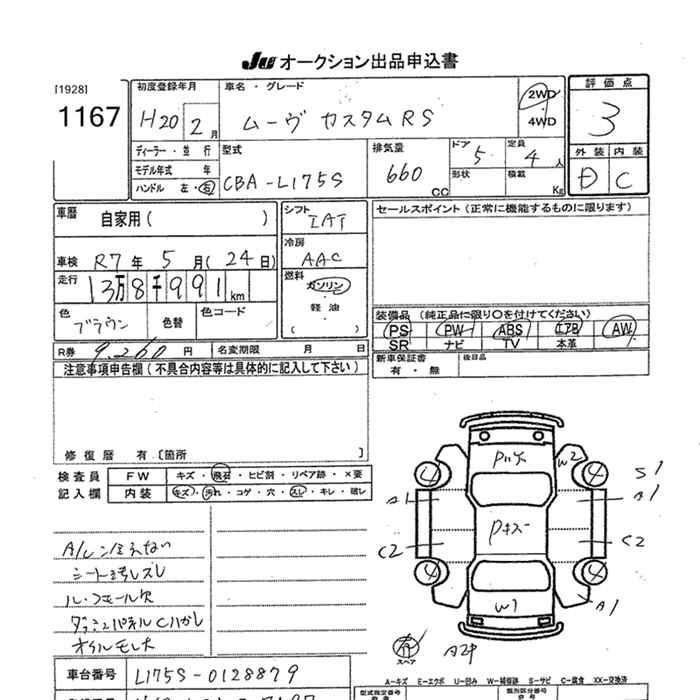 JU オークション出品申込書
[1928]
1167
初度登録年月
H20 2月
車名・グレード
ムーヴ カスタムRS
2WD
4WD
評価点
3
外装 内装
D C
ディーラー・並行
モデル年式 年
ハンドル 左・右
型式
CBA-L175S
排気量
660 CC
ドア 5
形状
定員 4人
積載 Kg
車歴 自家用( )
車検 R7年5月(24日)
走行 13万8千991km
色 ブラウン
色替
色コード
シフト IAT
冷房 AAC
燃料
ガソリン
・
軽油
( )
セールスポイント(正常に機能するものに限ります)
装備品(純正品に限り〇を付けてください)
PS PW ABS エアB AW
SR ナビ TV 本革
R券 9,260円
名変期限 月 日
新車保証書
有・無
後日品
注意事項申告欄(不具合内容等は具体的に記入して下さい)
修復歴 有〔箇所
検査員
記入欄
FW キズ・飛石・ヒビ割・リペア跡・×要
内装 キズ・汚れ・コゲ・穴・スレ・キレ・破レ
シートヨゴレスレ
オイルモレ大
W2
4 4
S1
A1 A1
C2 C2
4 4
W1
A1
スペア
車台番号 L175S-0128879
A-キズ E-エクボ U-凹み W-補修跡 S-サビ C-腐食 XX-交換済
型式指定番号
類別区分番号